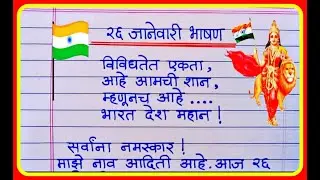 २६ जानेवारी भाषण
विविधतेत एकता,
आहे आमची शान,
म्हणूनच आहे ....
भारत देश महान !
सर्वांना नमस्कार !
माझे नाव आदिती आहे. आज २६